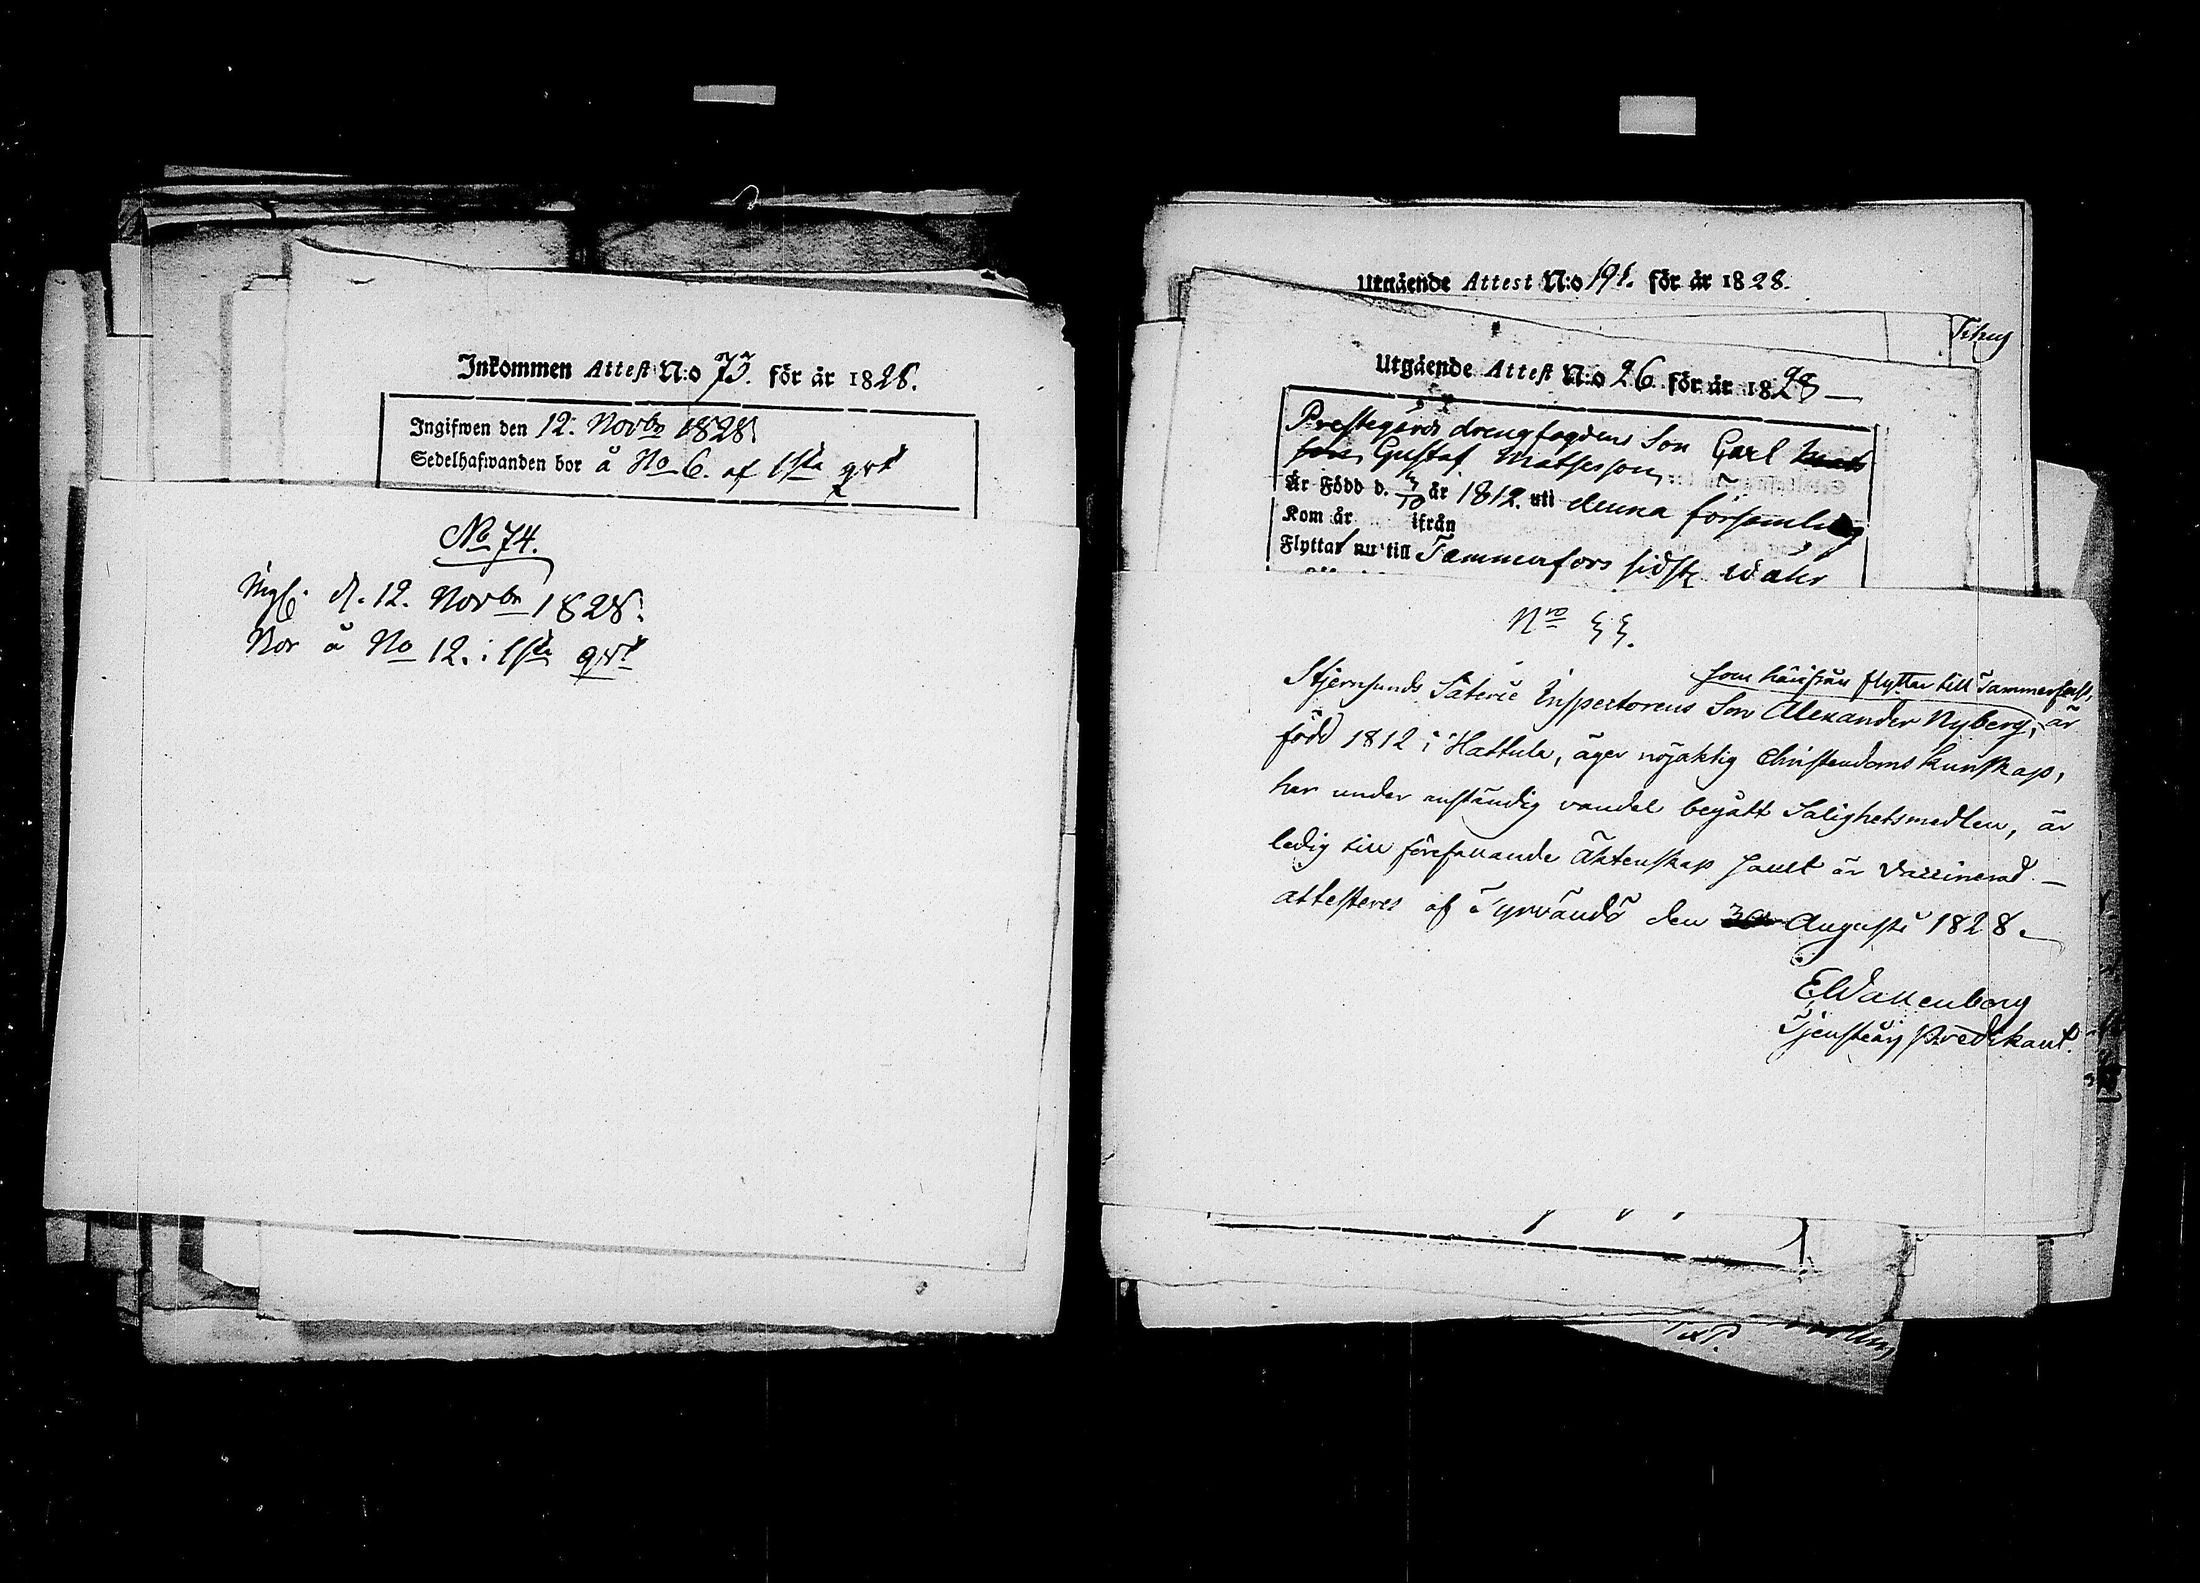 Inkommen Attest N:o 73. för år 1828.
Ingifwen den 12: Novbr 1828.
Sedelhafwanden bor å No 6. af 1sta qrt
No 74.
Ingf. d. 12. Novbr 1828.
Bor å No 12. i 1sta qrt
Utgående Attest N:o 191. för år 1828.
Utgående Attest N:o 26 för år 1828 —
Prestegårds drengfogdens Son Carl
Gustaf Matsesson
Är Född d. /10 år 1812. uti denna församling
Kom år ifrån
Flyttar nu till Tammerfors sidste
Nro 55.
som härifrån flyttar till Tammerfors,
Stjernsunds Säterie Inspectorens Son Alexander Nyberg, är
född 1812 i Hattula, äger nöjaktig Christendoms kunskap,
har under anständig vandel begått Salighetsmedlen, är
ledig till förefallande Äktenskap samt är Vaccinerad —
attesteres af Tyrvändö den Augusti 1828.
E Wallenborg
Tjenstg. Predikant.